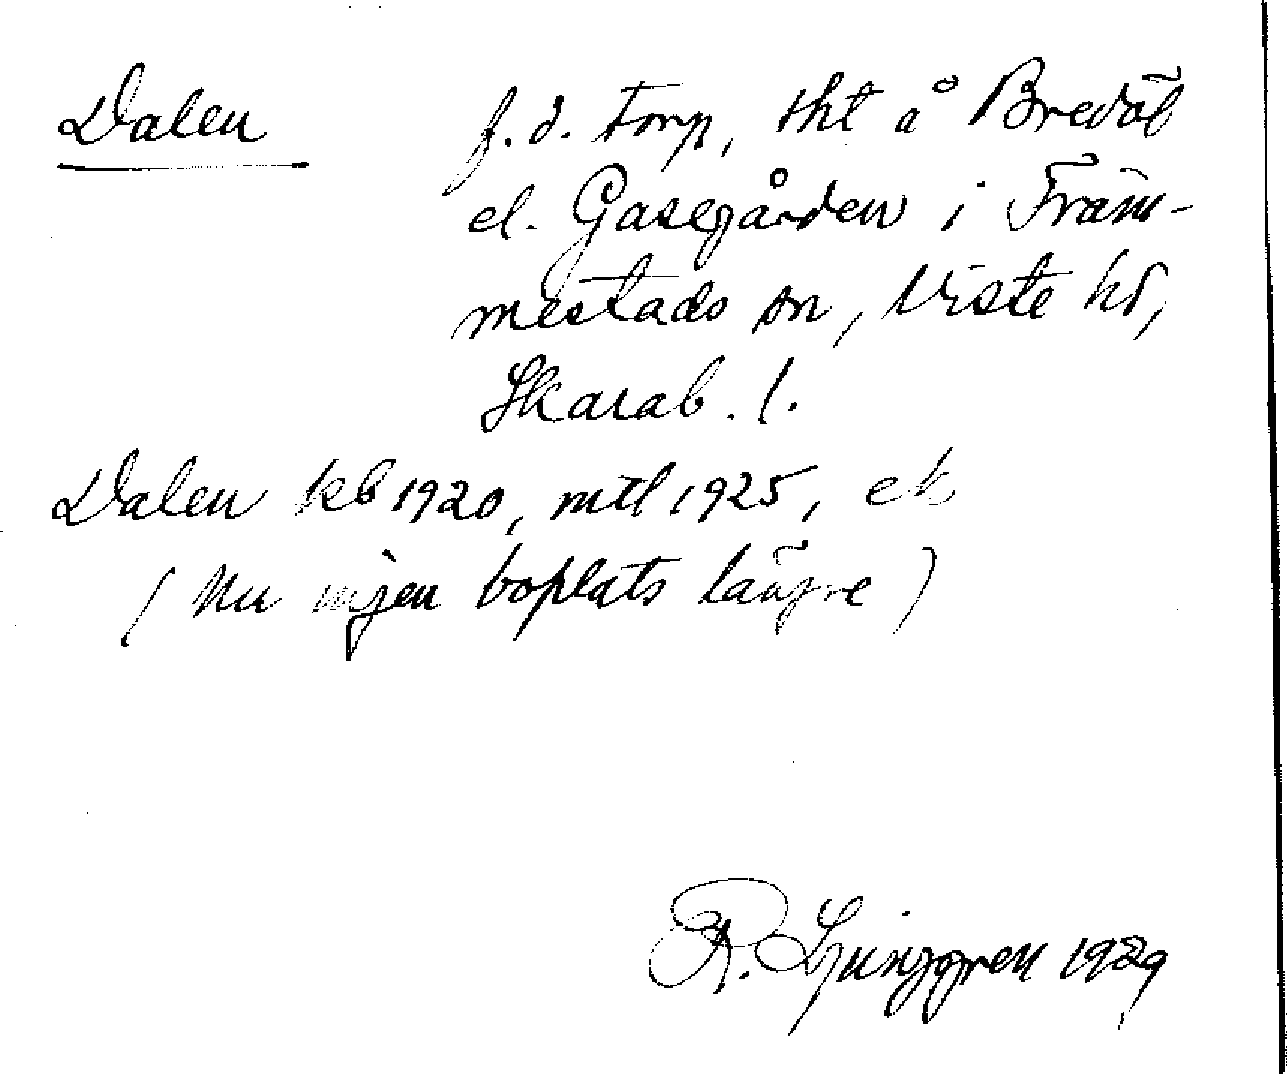 Dalen f.d. torp, tht å Bredöl
el. Gasegården i Främ-
mestads sn, Viste hd,
Skarab. l.
Dalen kb 1920, mtl 1925, ek
(Nu ingen boplats längre)
R. Ljunggren 1929